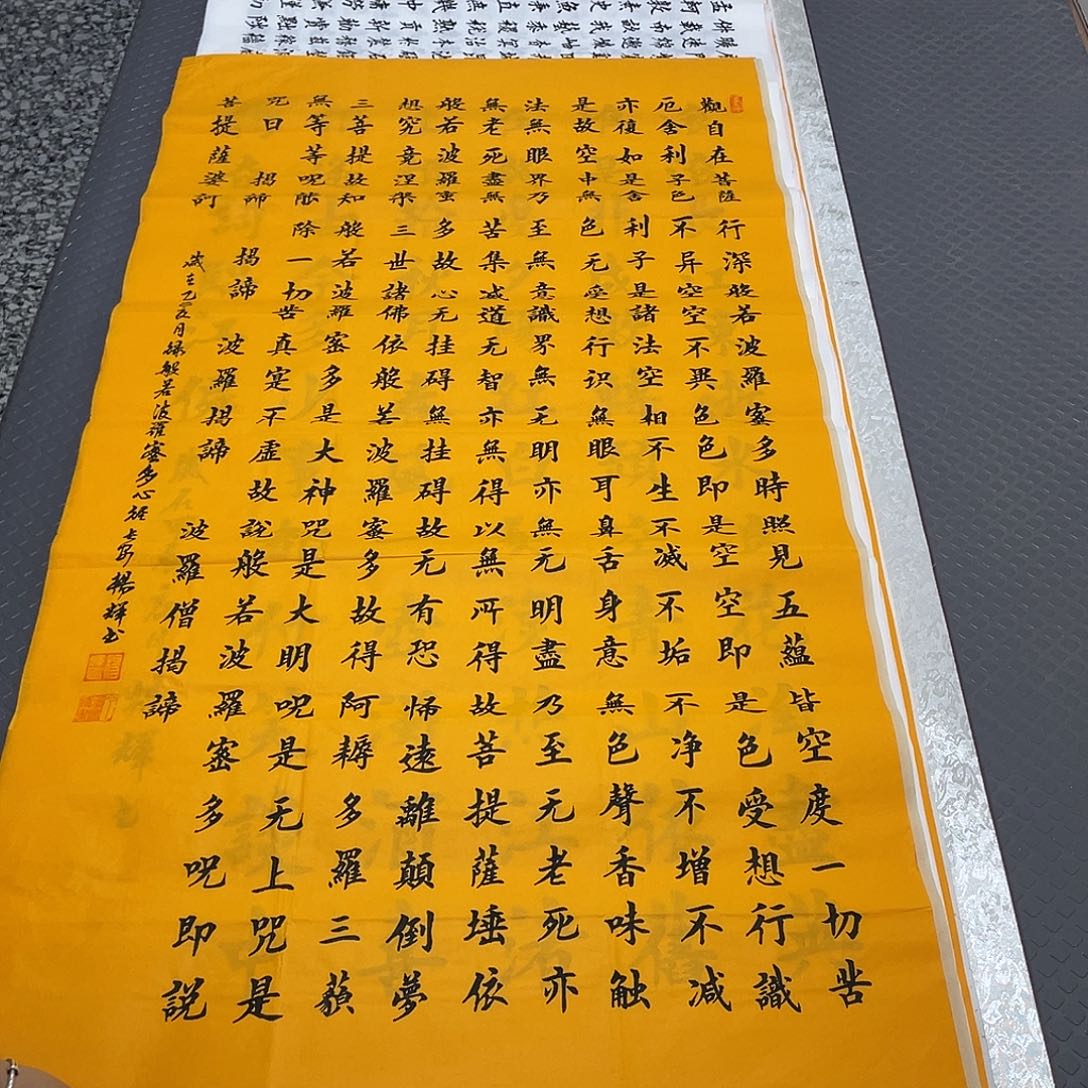 觀自在菩薩行深般若波羅蜜多時照見五蘊皆空度一切苦
厄舍利子色不异空空不異色色即是空空即是色受想行識
亦復如是舍利子是諸法空相不生不滅不垢不净不增不减
是故空中無色无受想行识無眼耳鼻舌身意無色聲香味触
法無眼界乃至無意識界無无明亦無无明盡乃至无老死亦
無老死盡無苦集滅道无智亦無得以無所得故菩提薩埵依
般若波羅蜜多故心无挂碍無挂碍故无有恐怖遠離顛倒夢
想究竟涅槃三世諸佛依般若波羅蜜多故得阿耨多羅三藐
三菩提故知般若波羅蜜多是大神咒是大明呪是无上咒是
無等等呪能除一切苦真寔不虛故說般若波羅蜜多呪即説
咒曰 揭諦 揭諦 波羅揭諦 波羅僧揭諦
菩提薩婆訶
歲在乙月録般若波羅蜜多心经 长安楊輝书